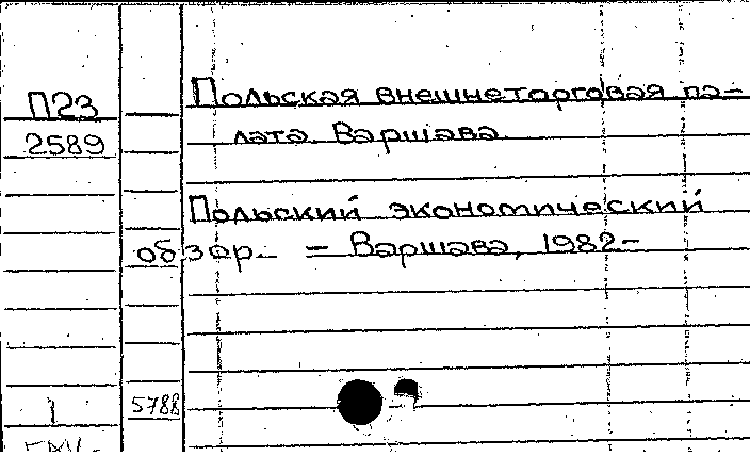 П23
2589
Польская внешнеторговая па-
лата. Варшава.
Польский экономический
обзор. – Варшава, 1982-
1
5788